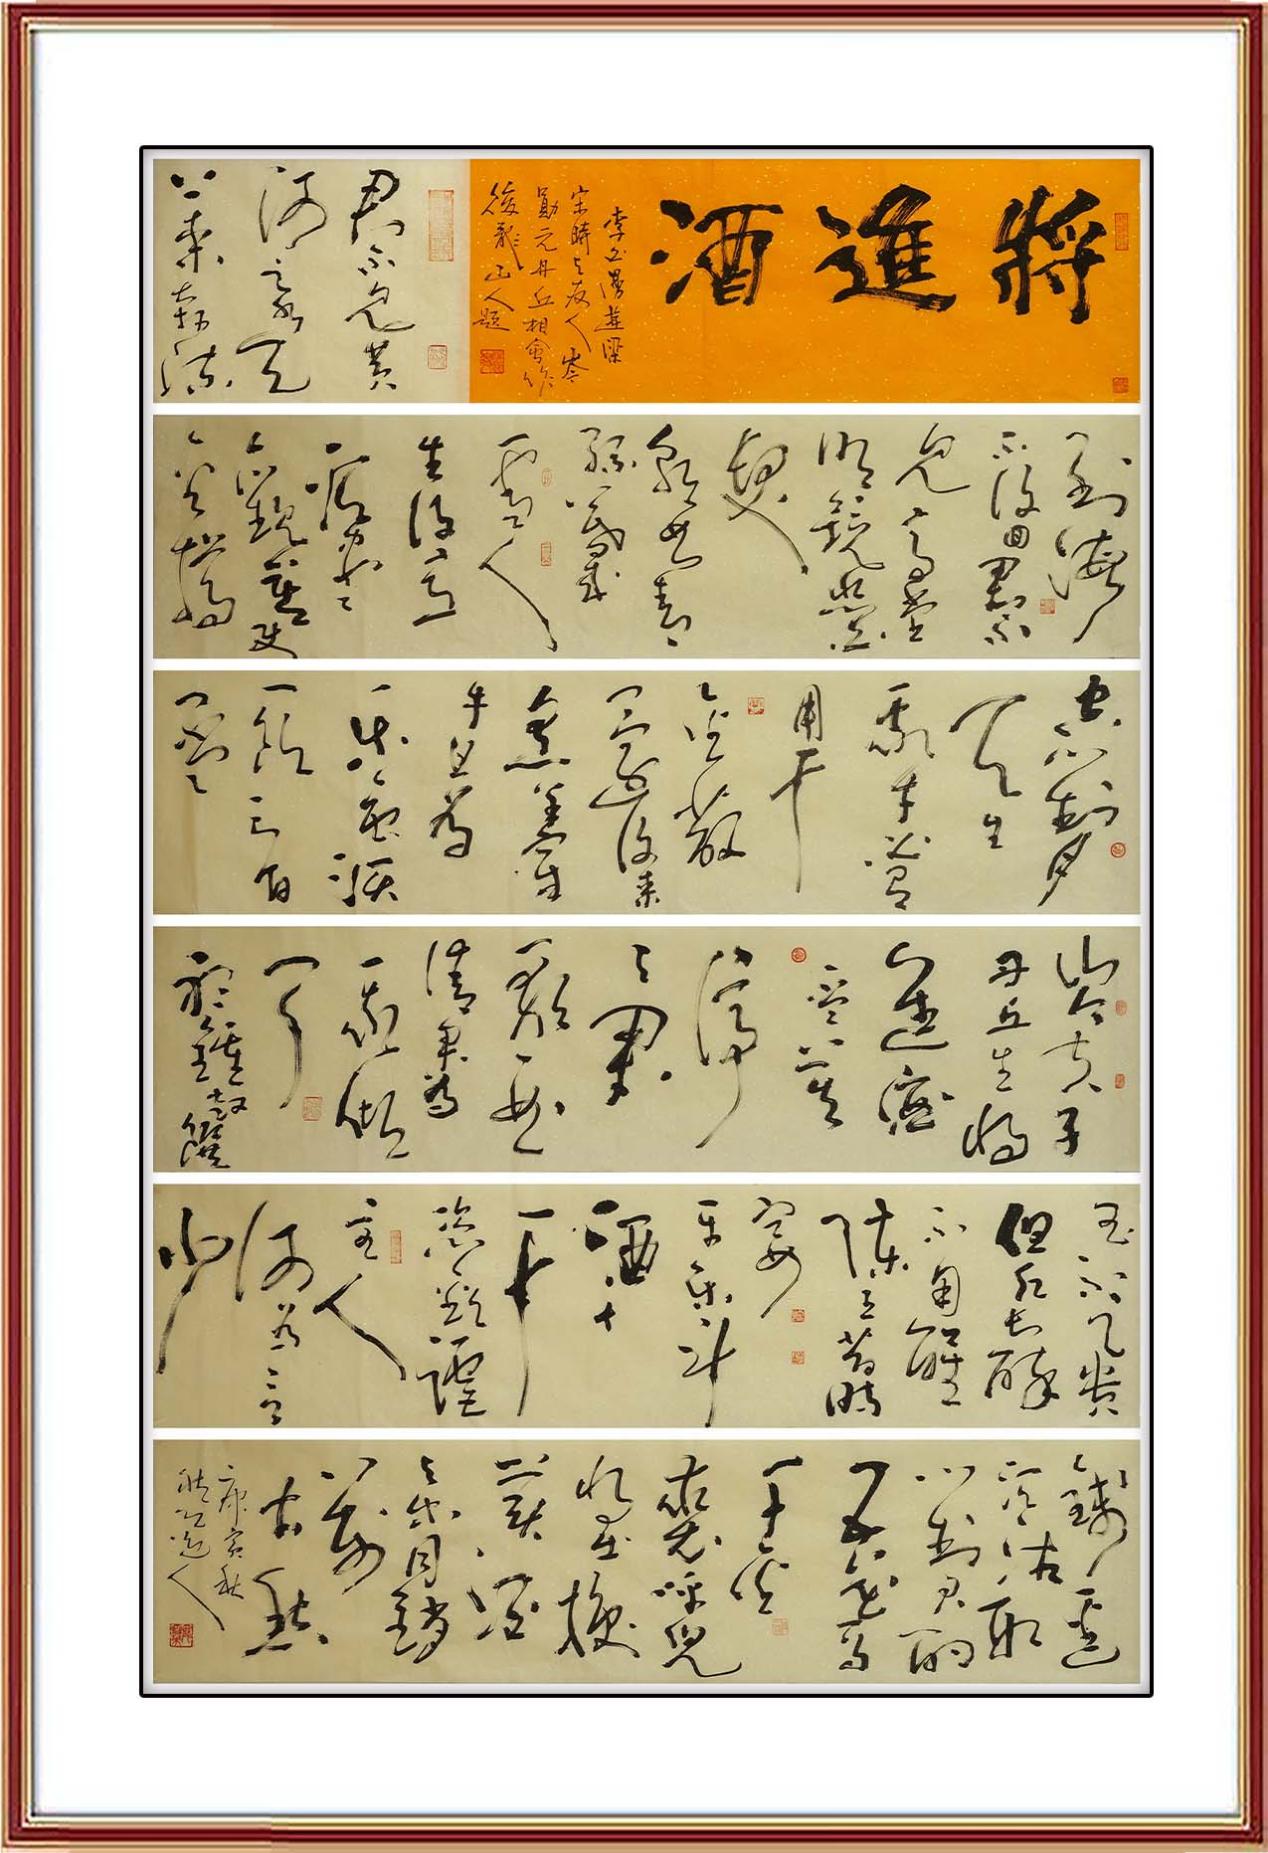 將進酒
李白漫遊梁
宋時與友人岑
勛元丹丘相會作
後龍山人題
君不見黃
河之水天
上來奔流
到海
不復回君不
見高堂
明鏡悲白
髮
朝如青
絲暮成
雪人
生得意
須盡
歡莫使
金樽
空對月
天生
我才必有
用千
金散
盡還復來
烹羊宰
牛且為
樂會須
一飲三百
杯
岑夫子
丹丘生將
進酒
杯莫
停與
君
歌一曲
請君為
我傾
耳
聽鐘鼓饌
玉不足貴
但願長醉
不用醒
陳王昔時
宴
平樂斗
酒十
千
恣歡謔
主人
何為言
少
錢逕
須沽取
對君酌
五花馬
千金
裘呼兒
將出換
美酒
與爾同銷
萬
古愁
庚寅秋